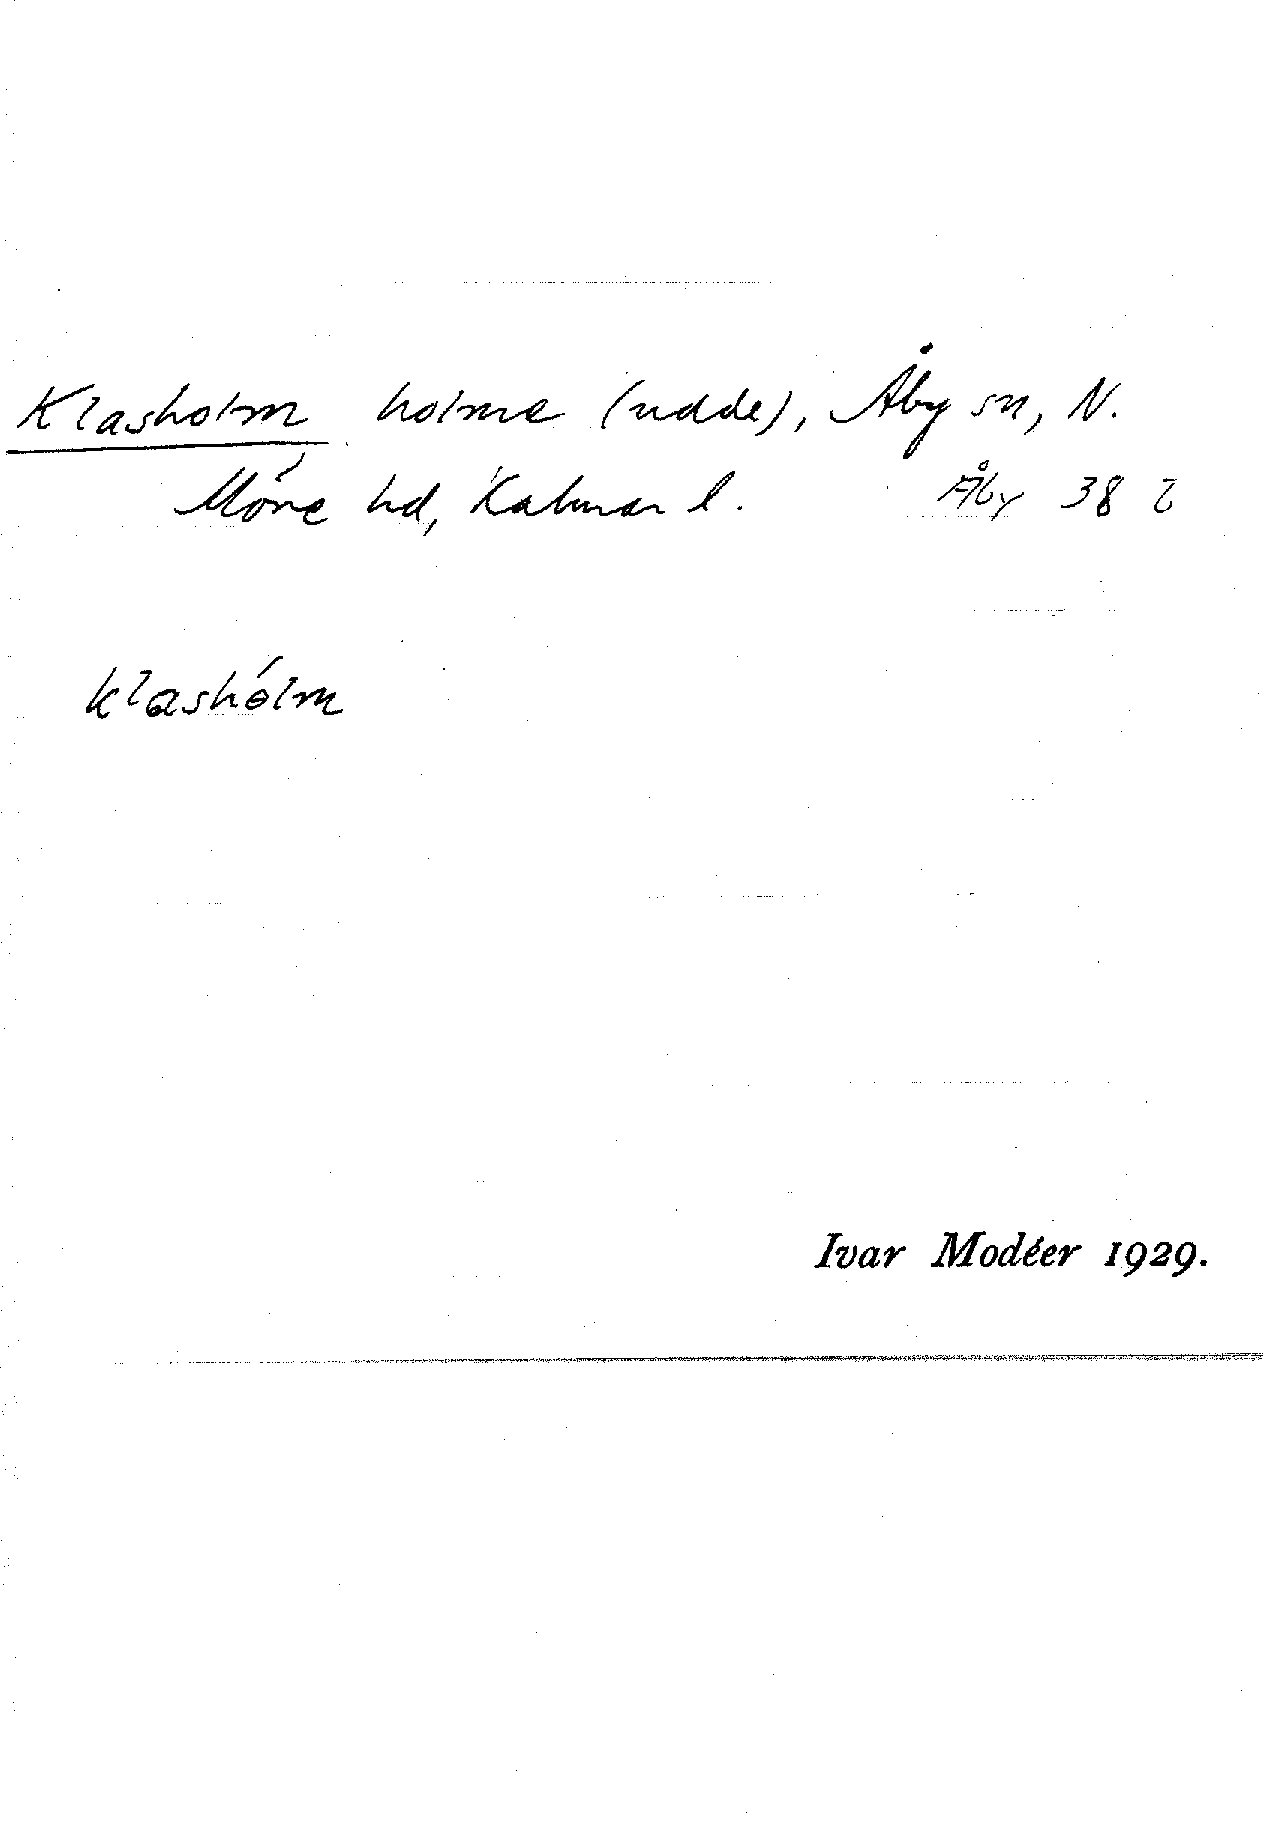 Klasholm holme (udde), Åby sn, N.
Möre hd, Kalmar l. Åby 38
klashólm
Ivar Modéer 1929.